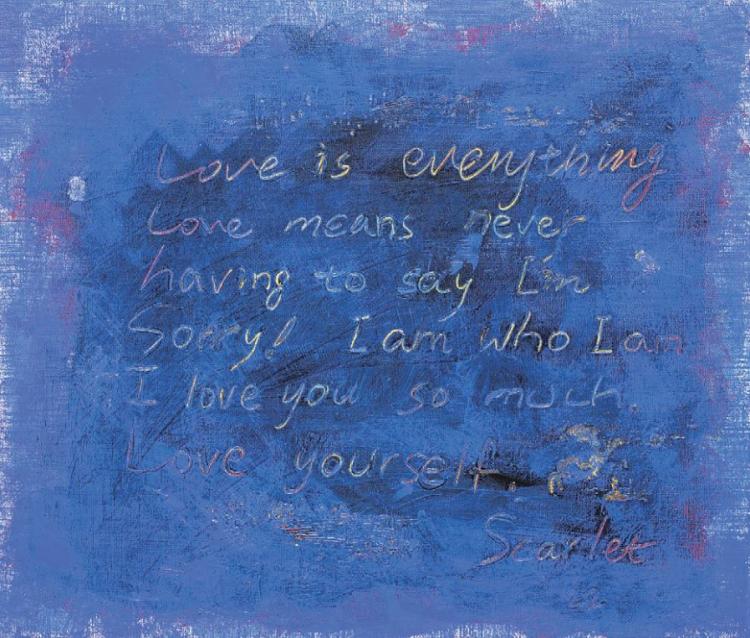 Love is everything
Love means never
having to say I'm
Sorry! I am who I am
I love you so much.
Love yourself.
Scarlet